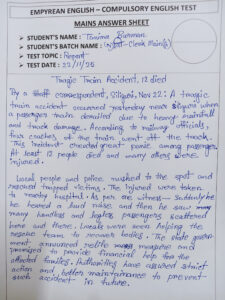 EMPYREAN ENGLISH – COMPULSORY ENGLISH TEST
MAINS ANSWER SHEET
➤ STUDENT'S NAME : Barman
➤ STUDENT'S BATCH NAME : Clerk Main(s)
➤ TEST TOPIC : Report
➤ TEST DATE : 22/11/20
Tragic Train Accident, 12 died
By a staff correspondent, Siliguri, Nov 22: A tragic
train accident occurred yesterday near Siliguri when
a passenger train derailed due to heavy rainfall
and track damage. According to railway officials,
four coaches of the train went off the track.
This incident created great panic among passengers.
At least 12 people died and many others were
injured.
Local people and police rushed to the spot and
rescued trapped victims. The injured were taken
to nearby hospital. As per one witness — Suddenly he
he heard a loud noise and then he saw
many handless and legless passengers scattered
here and there. Locals were seen helping the
rescue team to recover bodies. The state gover-
nment announced relife measures and
promised to provide financial help for the
affected families. Authorities have assured strict
action and better maintainance to prevent
such accident in future.